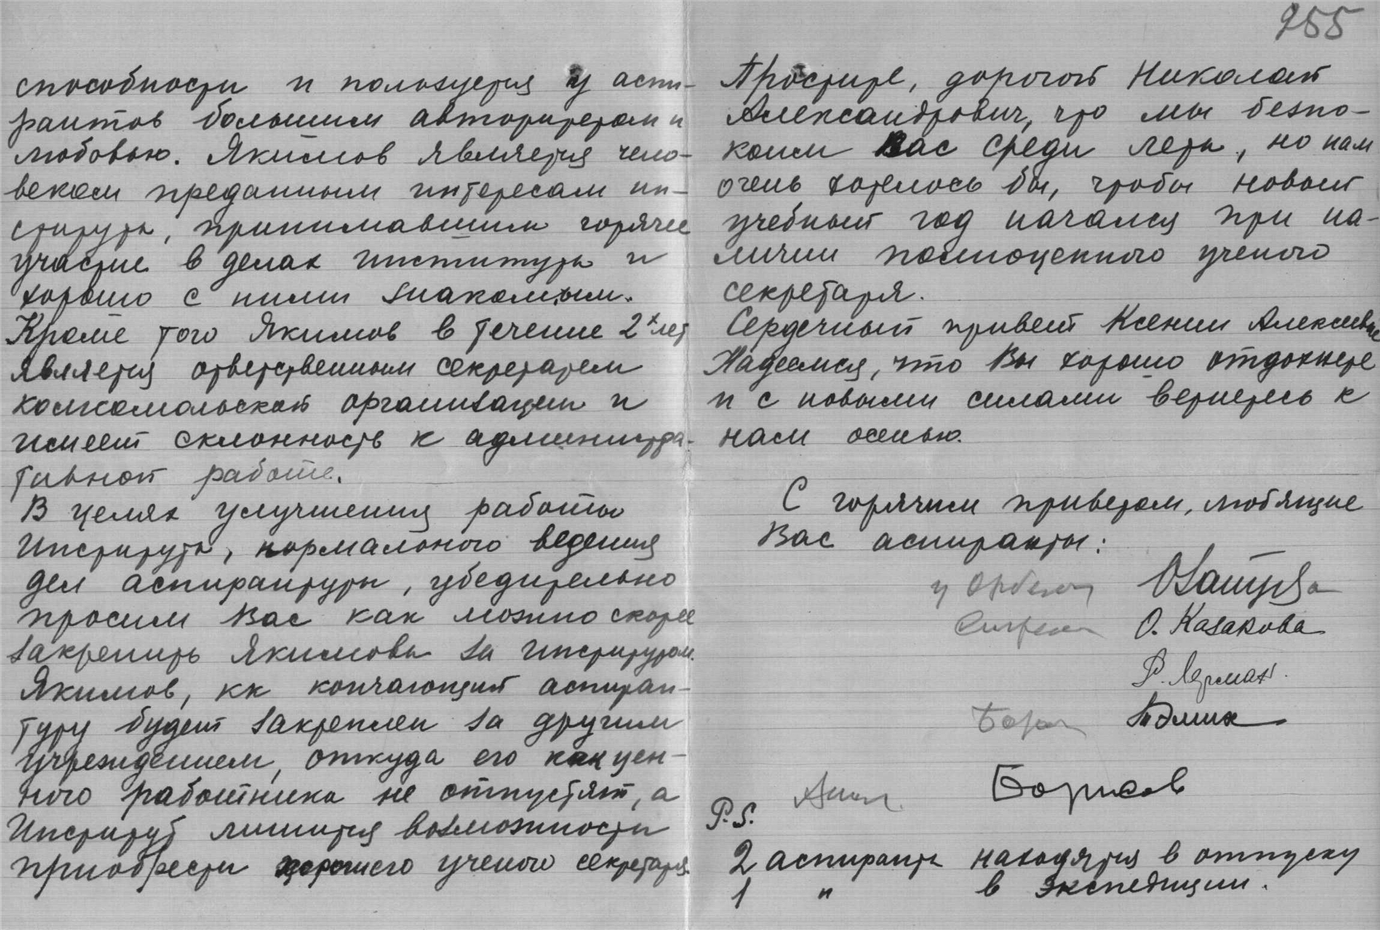 255
способности и пользуется у аспи-
рантов большим авторитетом и
любовью. Якимов является чело-
веком преданным интересам ин-
ститута, принимавшим горячее
участие в делах института и
хорошо с ними знакомым.
Кроме того Якимов в течение 2х лет
является ответственным секретарем
комсомольской организации и
имеет склонность к администра-
тивной работе.
В целях улучшения работы
Института, нормального ведения
дел аспирантуры, убедительно
просим Вас как можно скорее
закрепить Якимова за институтом.
Якимов, кк кончающий аспиран-
туру будет закреплен за другим
учреждением, откуда его как цен-
ного работника не отпустят, а
Институт лишится возможности
приобрести хорошего ученого секретаря.
Простите, дорогой Николай
Александрович, что мы безпо-
коим Вас среди лета, но нам
очень хотелось бы, чтобы новый
учебный год начался при на-
личии полноценного ученого
секретаря.
Сердечный привет Ксении Алексеевне
Надеемся, что Вы хорошо отдохнете
и с новыми силами вернетесь к
нам осенью.
С горячим приветом, любящие
Вас аспиранты:
О. Казакова
Р. Лерман.
Борисов
P.S.
2 аспиранта находятся в отпуску
1 " в экспедиции.